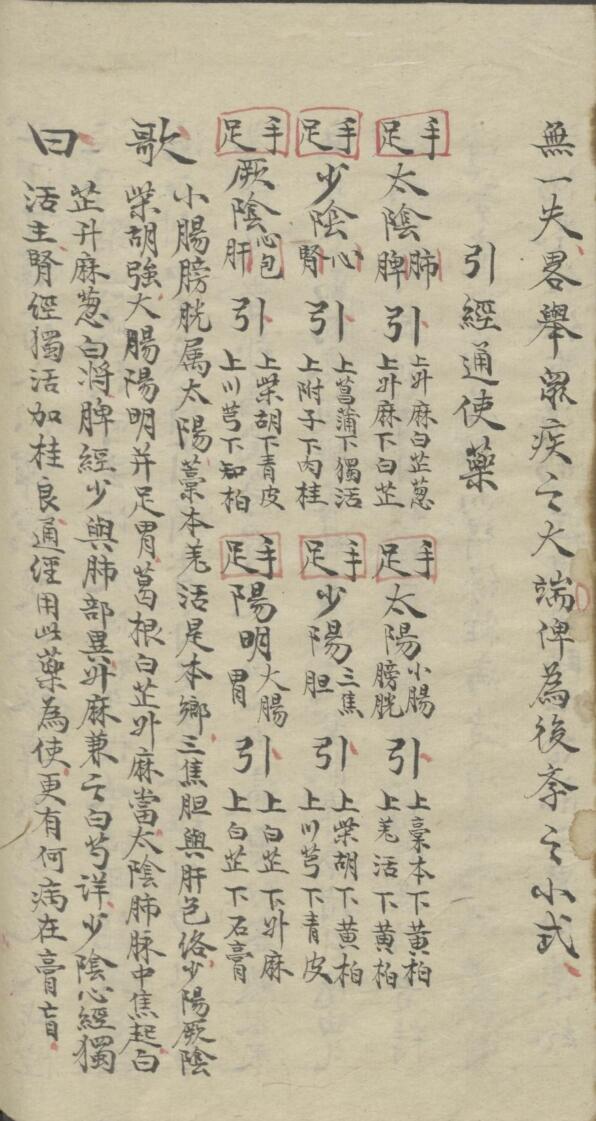 無一失畧舉眾疾之大端俾為後斈之小式
引經通使藥
手足太陰肺脾引上升麻白芷葱上升麻下白芷
手足太陽小腸膀胱引上藁本下黃柏上羌活下黃柏
手足少陰心腎引上菖蒲下獨活上附子下肉桂
手足少陽三焦胆引上柴胡下黃柏上川芎下青皮
手足厥陰心包肝引上柴胡下青皮上川芎下知柏
手足陽明大腸胃引上白芷下升麻上白芷下石膏
歌曰
小腸膀胱属太陽藁本羌活是本鄉三焦胆與肝包络少陽厥陰
柴胡強大腸陽明并足胃葛根白芷升麻當太陰肺脉中焦起白
芷升麻葱白將脾經少與肺部異升麻兼之白芍详少陰心經獨
活主腎經獨活加桂良通經用此藥為使更有何病在膏盲